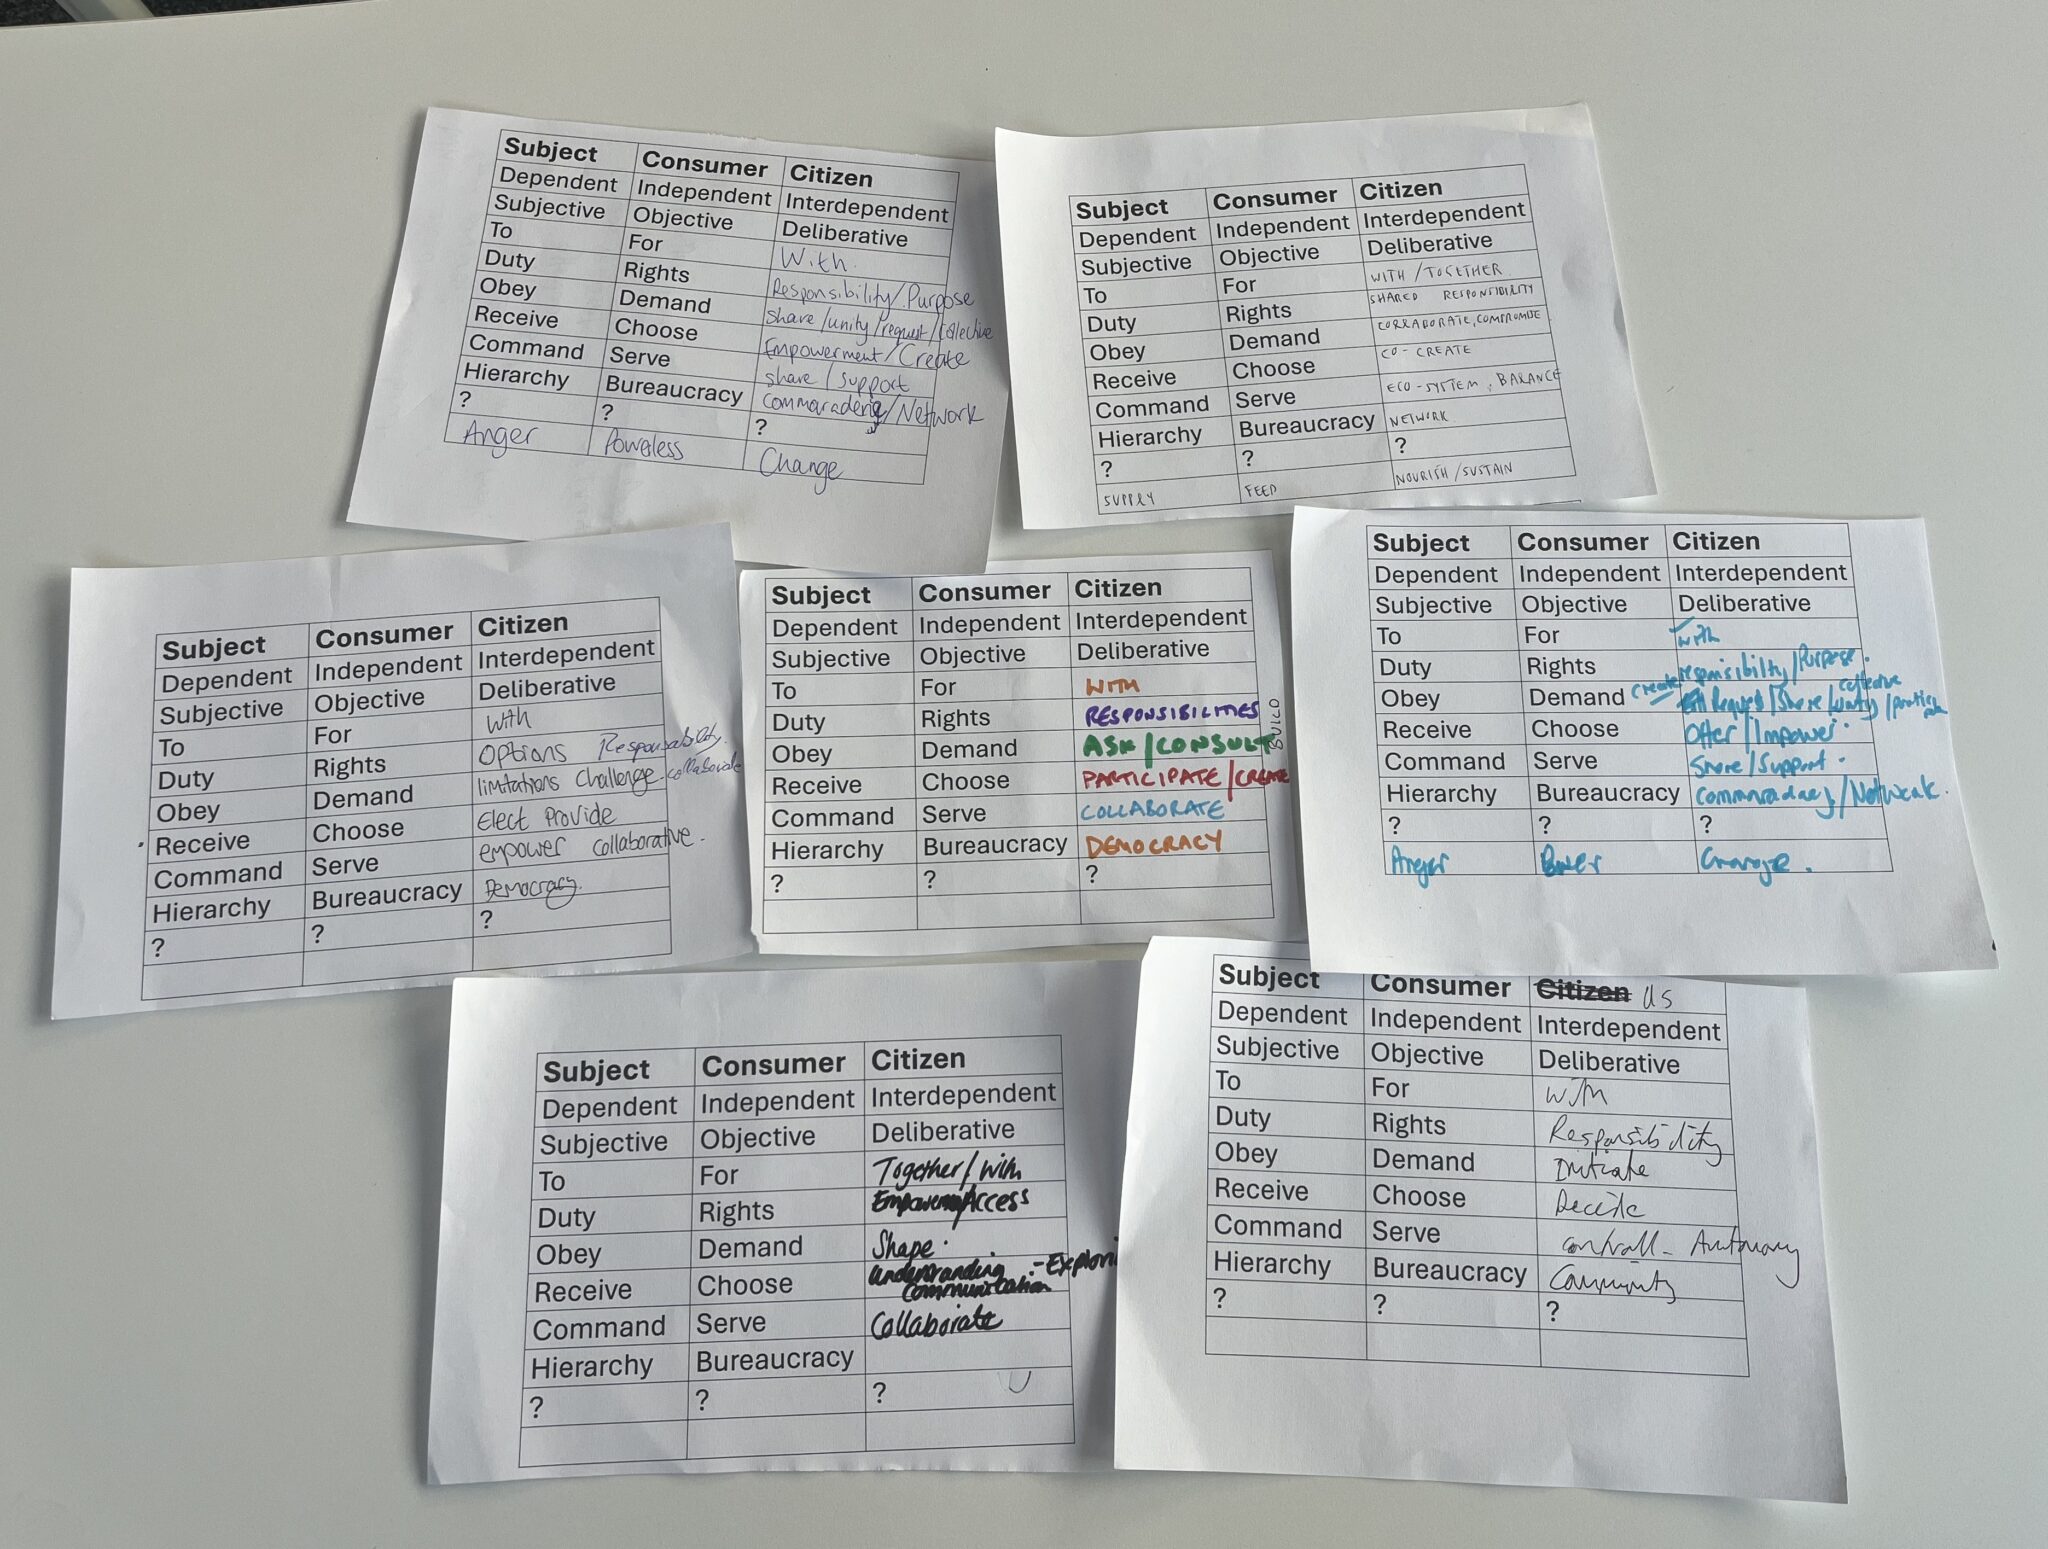 Subject Consumer Citizen
Dependent Independent Interdependent
Subjective Objective Deliberative
To For With
Duty Rights Responsibility/Purpose
Obey Demand Share/unity/request/collective
Receive Choose Empowerment/Create
Command Serve share/support
Hierarchy Bureaucracy /Network
? ? ?
Anger Powerless Change
Subject Consumer Citizen
Dependent Independent Interdependent
Subjective Objective Deliberative
To For WITH/TOGETHER
Duty Rights SHARED RESPONSIBILITY
Obey Demand COLLABORATE, COMPROMISE
Receive Choose CO-CREATE
Command Serve ECO-SYSTEM, BALANCE
Hierarchy Bureaucracy NETWORK
? ? ?
SUPPLY FEED NOURISH/SUSTAIN
Subject Consumer Citizen
Dependent Independent Interdependent
Subjective Objective Deliberative
To For With
Duty Rights Options Responsability
Obey Demand limitations Challenge collaborate
Receive Choose Elect Provide
Command Serve empower collaborative.
Hierarchy Bureaucracy Democracy
? ? ?
Subject Consumer Citizen
Dependent Independent Interdependent
Subjective Objective Deliberative
To For WITH
Duty Rights RESPONSIBILITIES
Obey Demand ASK/CONSULT BUILD
Receive Choose PARTICIPATE/CREATE
Command Serve COLLABORATE
Hierarchy Bureaucracy DEMOCRACY
? ? ?
Subject Consumer Citizen
Dependent Independent Interdependent
Subjective Objective Deliberative
To For with
Duty Rights /Purpose.
Obey Demand create Request/Share/Unity/collective
Receive Choose Offer/Impower.
Command Serve Share/Support.
Hierarchy Bureaucracy
? ? ?
Anger Change.
Subject Consumer Citizen
Dependent Independent Interdependent
Subjective Objective Deliberative
To For Together/With
Duty Rights Access
Obey Demand Shape.
Receive Choose Understanding communication
Command Serve Collaborate
Hierarchy Bureaucracy
? ? ?
Subject Consumer Citizen Us
Dependent Independent Interdependent
Subjective Objective Deliberative
To For With
Duty Rights Responsibility
Obey Demand Initiate
Receive Choose Decide
Command Serve controll - Autonomy
Hierarchy Bureaucracy Community
? ? ?